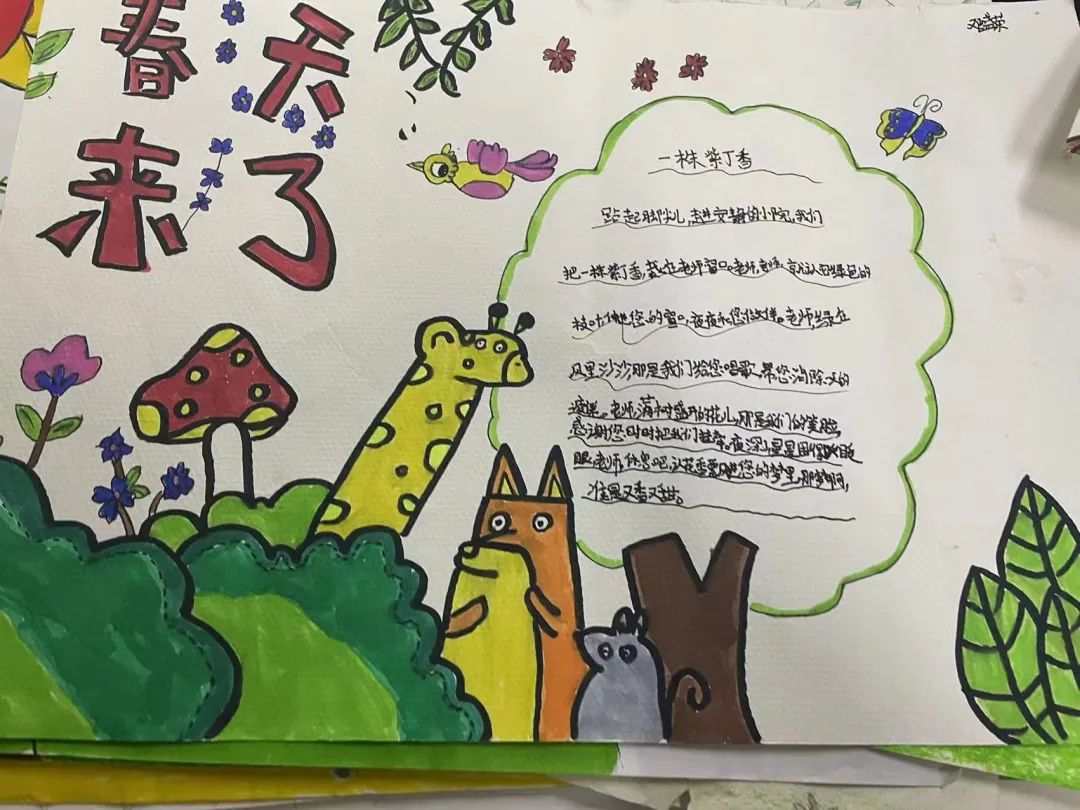 春天
来了
一株紫丁香
踮起脚尖儿,走进安静的小院,我们
把一株紫丁香,栽在老师窗口。老师,老师,就让它绿色的
枝叶伸进您的窗口,夜夜和您作伴。老师,绿在
风里沙沙那是我们给您唱歌,帮您消除一天的
疲倦。老师,满树盛开的花儿,那是我们的笑脸
感谢您时时把我们挂牵,夜深了,星星困得眨
眼,老师,休息吧,让花香飘进您的梦里,那梦啊,
准是又香又甜。